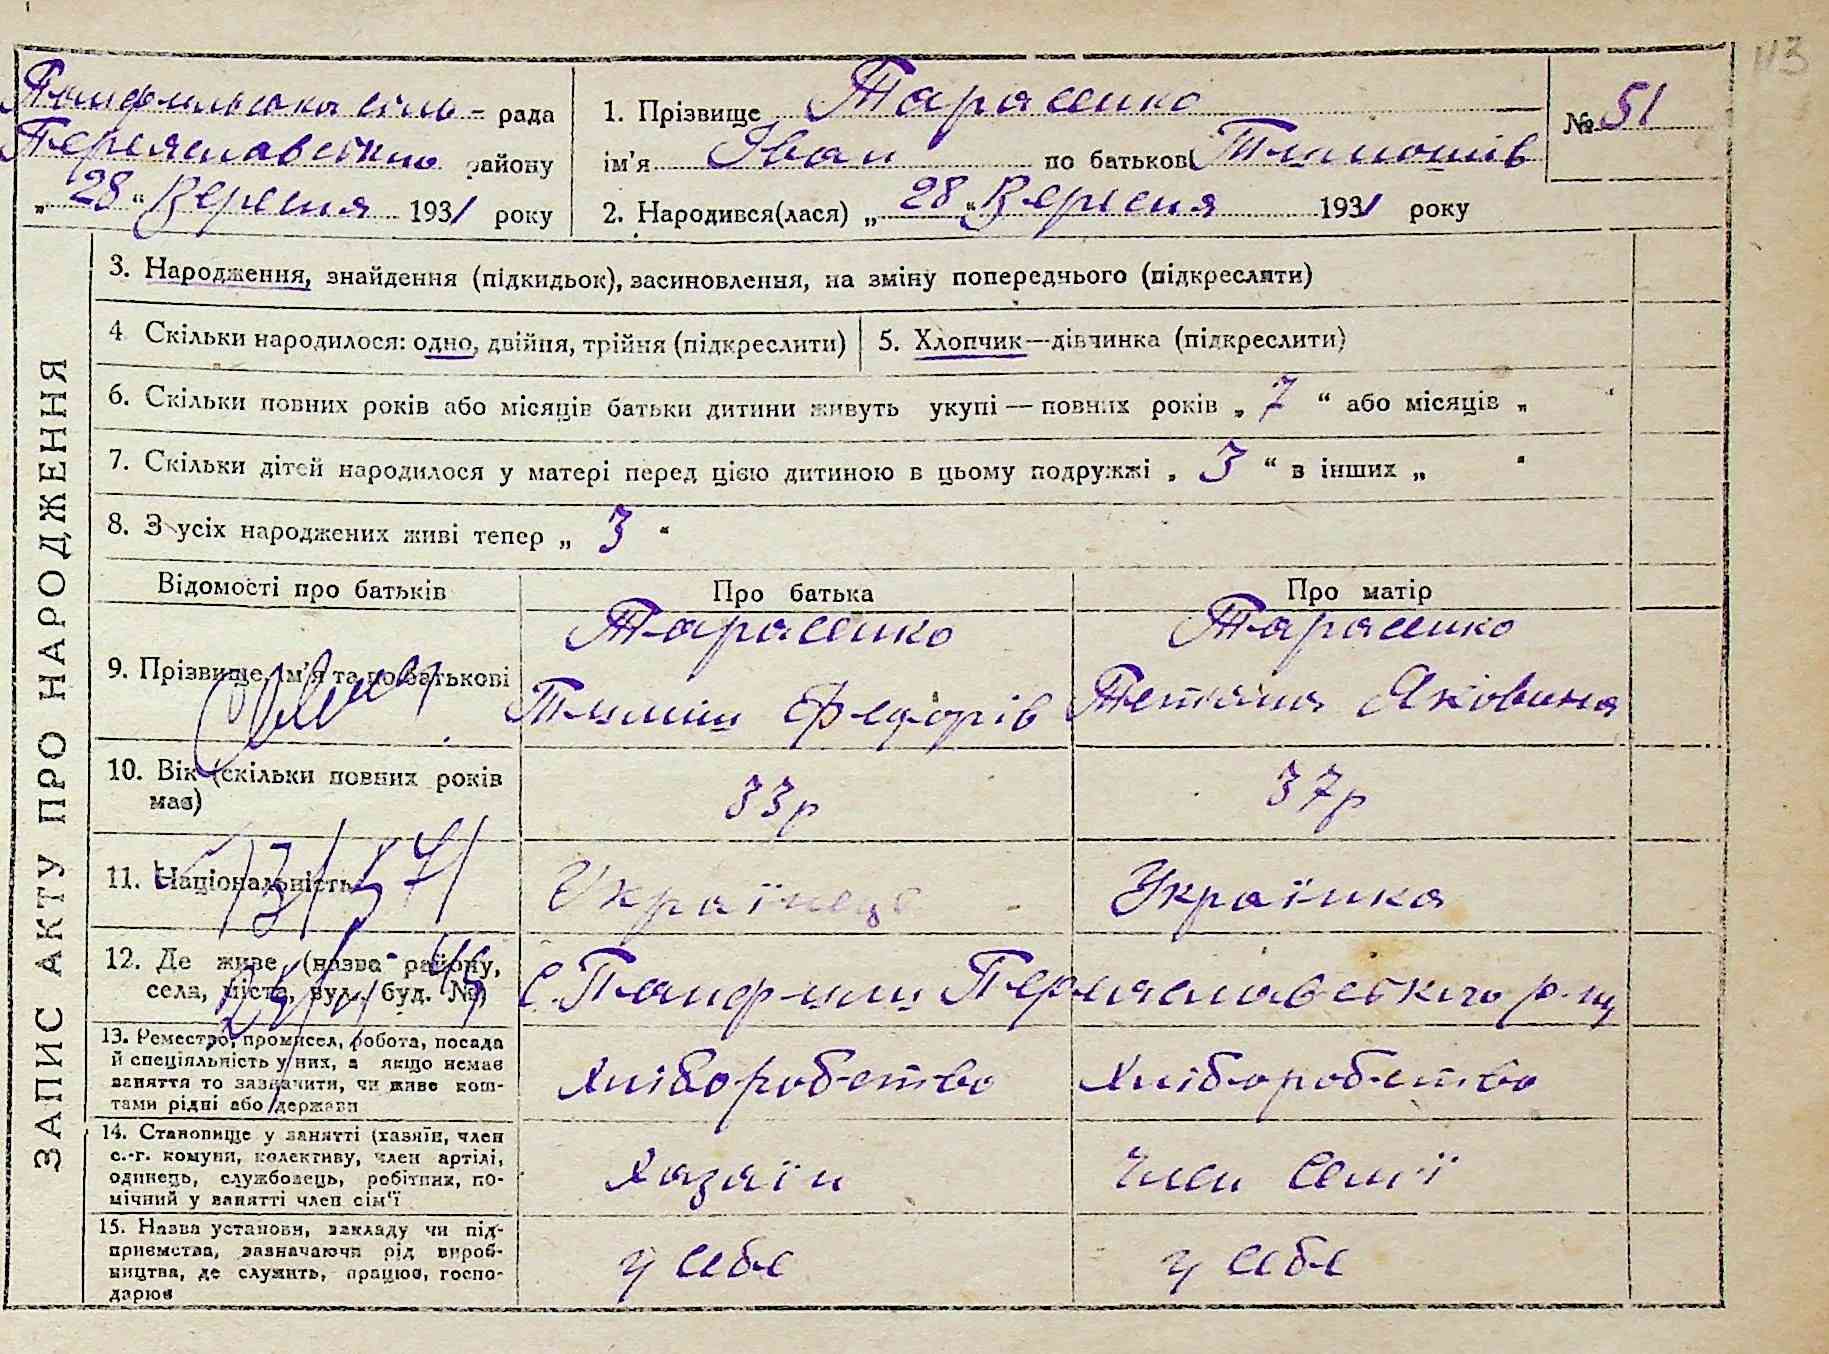 113
Панфильська сіль- рада
Переяславського району
„ 28 “ Вересня 1931 року
1. Прізвище Тарасенко
ім'я Іван по батькові Тимошів
2. Народився(лася) „ 28 “ Вересня 1931 року
№ 51
ЗАПИС АКТУ ПРО НАРОДЖЕННЯ
3. Народження, знайдення (підкидьок), засиновлення, на зміну попереднього (підкреслити)
4 Скільки народилося: одно, двійня, трійня (підкреслити)
5. Хлопчик—дівчинка (підкреслити)
6. Скільки повних років або місяців батьки дитини живуть укупі — повних років „ 7 “ або місяців „ “
7. Скільки дітей народилося у матері перед цією дитиною в цьому подружжі „ 3 “ в інших „ “
8. З усіх народжених живі тепер „ 3 “
Відомості про батьків
Про батька
Про матір
9. Прізвище, ім'я та по батькові
Тарасенко
Тиміш Федорів
Тарасенко
Тетяна Яковина
10. Вік (скільки повних років
має)
33р
37р
11. Національність
Українець
Українка
12. Де живе (назва району,
села, міста, вул., буд. №)
С. Панфили Переяславського р-ну
13. Ремество, промисел, робота, посада
й спеціяльність у них, а якщо немає
заняття то зазначити, чи живе кош-
тами рідні або держави
Хліборобство
Хліборобство
14. Становище у занятті (хазяїн, член
с.-г. комуни, колективу, член артілі,
одинець, службовець, робітник, по-
мічний у занятті член сім'ї
Хазяїн
Член семї
15. Назва установи, закладу чи під-
приємства, зазначаючи рід вироб-
ництва, де служить, працює, госпо-
дарює
у себе
у себе